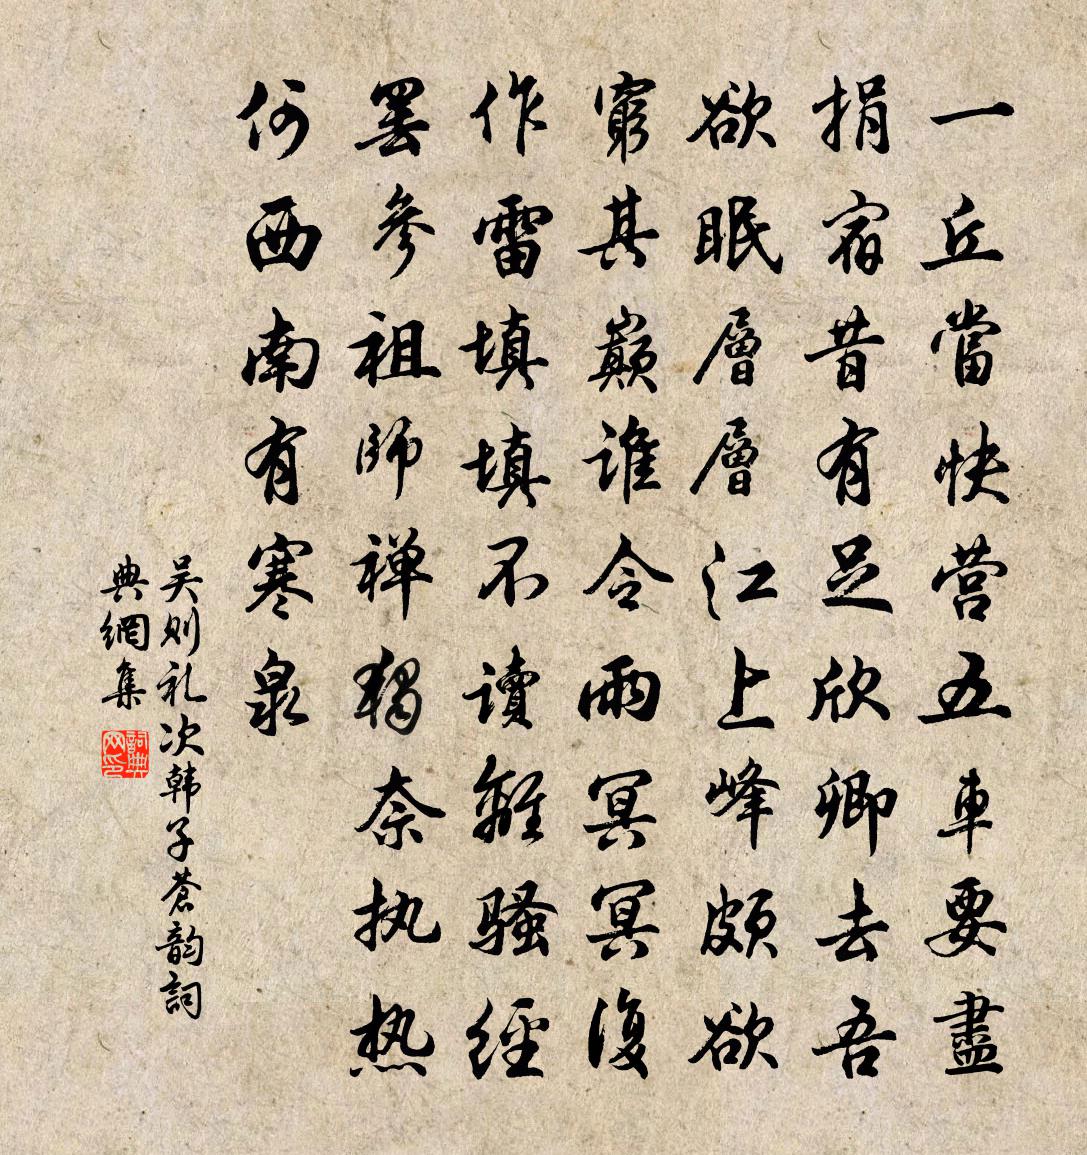 一丘當快营五車要盡
捐宿昔有足欣卿去吾
欲眠層層江上峰頗欲
窮其巅谁令雨冥冥復
作雷填填不讀離骚經
罢參祖師禅独奈执热
何西南有寒泉
吴则礼次韩子蒼韵詞
典網集
詞典网印